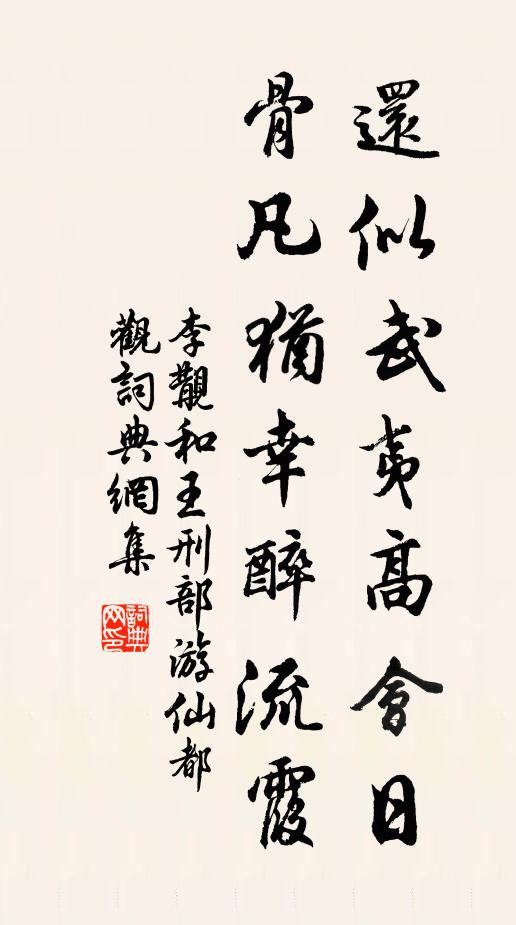 還似武夷高會日
骨凡猶幸醉流霞
李觀和王刑部游仙都
觀詞典網集
詞典網印